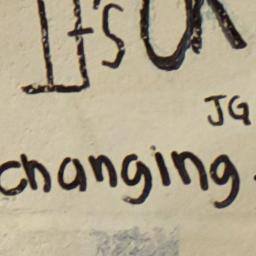 It's OK
JG
changing.